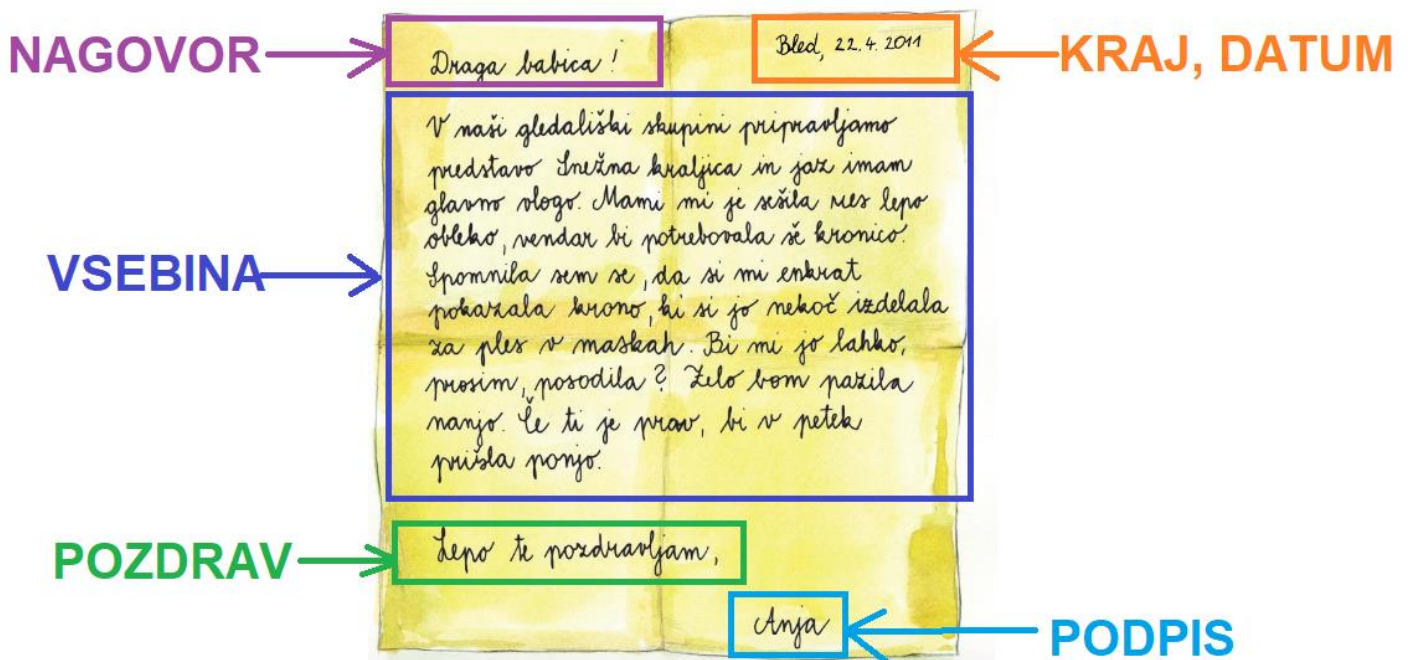 NAGOVOR
Draga babica!
Bled, 22. 4. 2011
KRAJ, DATUM
V naši gledališki skupini pripravljamo
predstavo Snežna kraljica in jaz imam
glavno vlogo. Mami mi je sešila res lepo
obleko, vendar bi potrebovala še kronico.
Spomnila sem se, da si mi enkrat
pokazala krono, ki si jo nekoč izdelala
za ples v maskah. Bi mi jo lahko,
prosim, posodila? Zelo bom pazila
nanjo. Če ti je prav, bi v petek
prišla ponjo.
VSEBINA
POZDRAV
Lepo te pozdravljam,
Anja
PODPIS